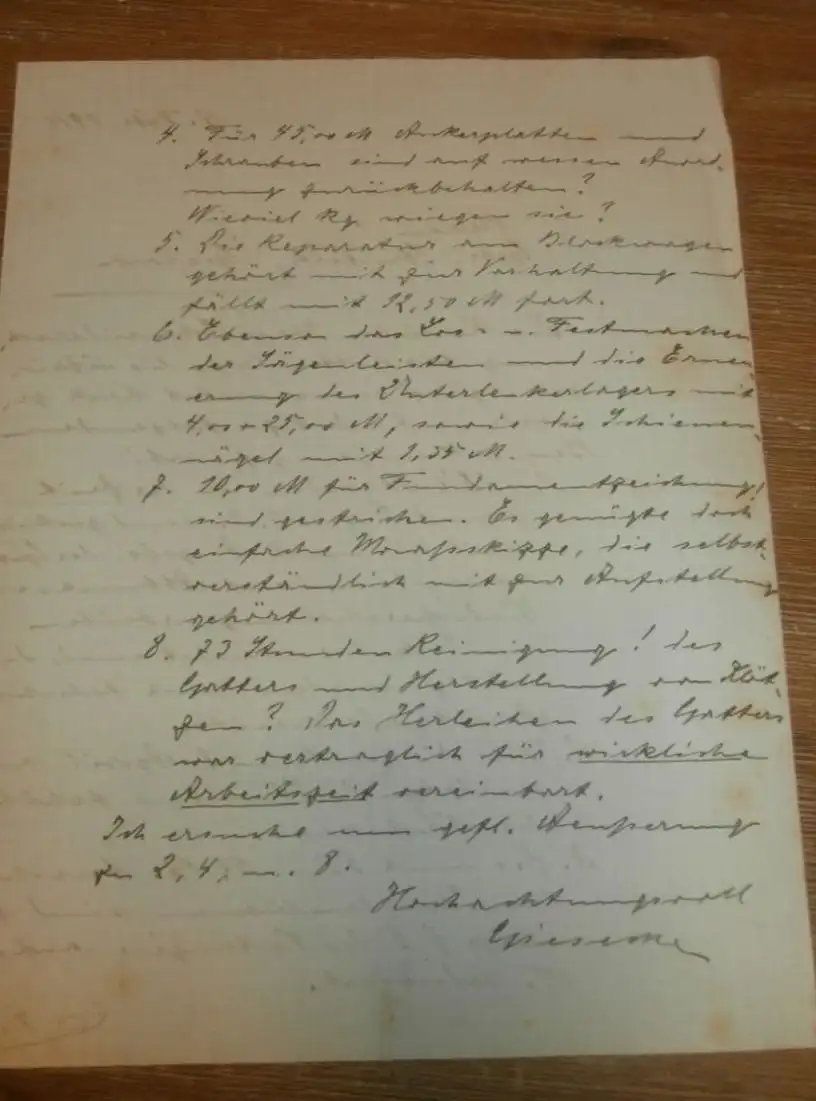 4. Für 45,00 M Ankerplatten und
Schrauben sind auf wessen Anord-
nung zurückbehalten?
Wieviel kg wiegen sie?
5. Die Reparatur am Blockwagen
gehört mit zur Vorhaltung und
fällt mit 12,50 M fort.
6. Ebenso das Los- u. Festmachen
der Sägenleisten und die Erneu-
erung des Unterlenkerlagers mit
4,00 + 25,00 M, sowie die Schienen-
nägel mit 1,35 M.
7. 10,00 M für Fundamentzeichnung!
sind gestrichen. Es genügte doch
einfache Massskizze, die selbst-
verständlich mit zur Aufstellung
gehört.
8. 73 Stunden Reinigung! des
Gatters und Herstellung von Klöt-
zen? Das Herleihen des Gatters
war vertraglich für wirkliche
Arbeitszeit vereinbart.
Ich ersuche um gefl. Aeusserung
zu 2, 4, u. 8.
Hochachtungsvoll
Giesecke